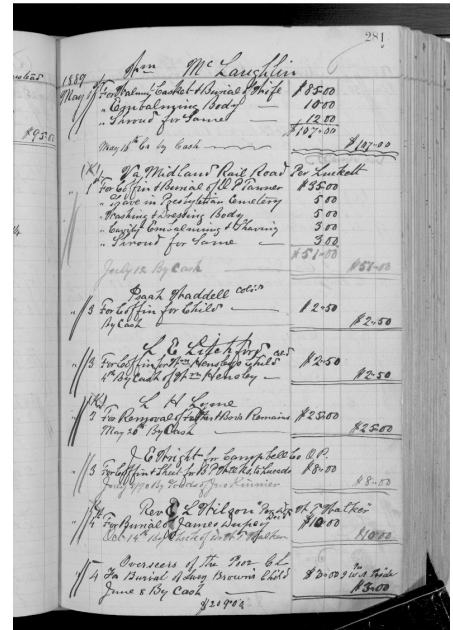 281
Wm McLaughlin
1889
May 1st For Walnut Casket & Burial of Wife $85.00
" Embalming Body 10.00
" Shroud for Same 12.00
$107.00
May 18th Cr by Cash $107.00
$95.00
(X) Va. Midland Rail Road Per Luckett
" 1st For Coffin & Burial of Tanner $35.00
" Grave in Presbyterian Cemetery 5.00
" Washing & Dressing Body 5.00
" Cavity Embalming & Shaving 3.00
" Shroud for Same 3.00
$51.00
July 12 By Cash $51.00
Isaah Waddell
" 3 For Coffin for Child $2.50
By Cash $2.50
L E Litchford
" 3 For Coffin for Wm Hensley's Child $2.50
4th By Cash of Wm Hensley $2.50
L H Lyne
" 3 For Removal of Remains $25.00
May 20th By Cash $25.00
J E Wright for Campbell Co O.P.
" 3 For Coffin & Sheet for $8.00
$8.00
Rev L Wilson T Walker
" 4 For Burial of James $10.00
Oct 14th By Walker $10.00
Overseers of the Poor
" 4 For Burial of Lucy Brown's Child $3.00
June 8 By Cash $3.00
$209.00